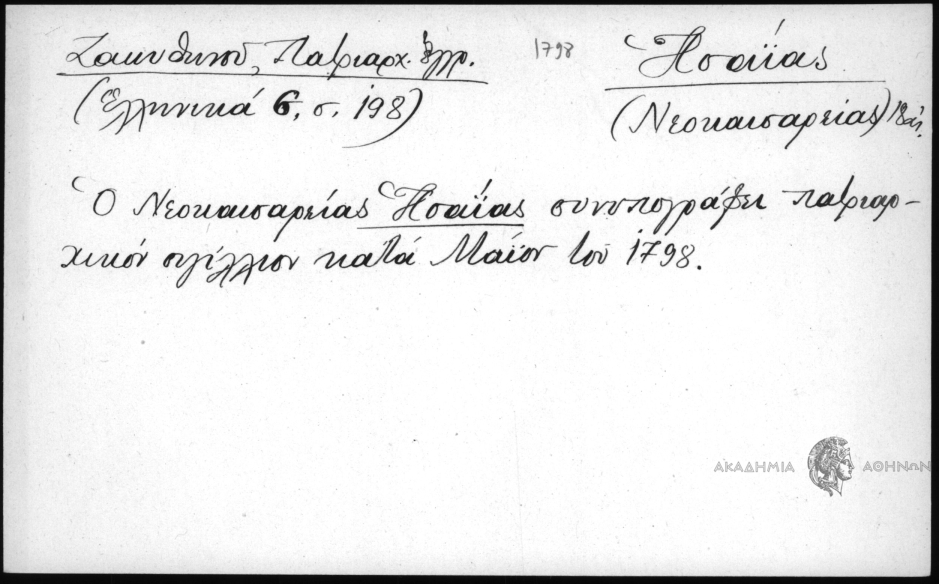 Ζακυθηνοῦ, Πατριαρχ. ἔγγρ. 1798 Ἡσαΐας
(Ἑλληνικά 6, σ. 198) (Νεοκαισαρείας)
Ὁ Νεοκαισαρείας Ἡσαΐας συνυπογράφει πατριαρ-
χικόν σιγίλλιον κατά Μάϊον τοῦ 1798.
ΑΚΑΔΗΜΙΑ ΑΘΗΝΩΝ